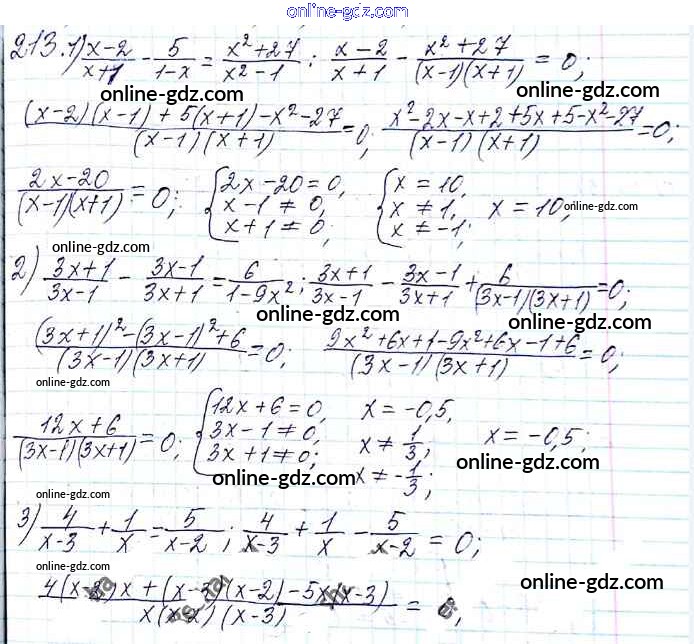 online-gdz.com
213. 1) (x-2)/(x+1) - 5/(1-x) = (x²+27)/(x²-1); (x-2)/(x+1) - (x²+27)/((x-1)(x+1)) = 0;
online-gdz.com online-gdz.com
((x-2)(x-1)+5(x+1)-x²-27)/((x-1)(x+1)) = 0; (x²-2x-x+2+5x+5-x²-27)/((x-1)(x+1)) = 0;
(2x-20)/((x-1)(x+1)) = 0; { 2x-20=0, x-1≠0, x+1≠0; { x=10, x≠1, x≠-1; x=10;
online-gdz.com online-gdz.com
online-gdz.com
2) (3x+1)/(3x-1) - (3x-1)/(3x+1) = 6/(1-9x²); (3x+1)/(3x-1) - (3x-1)/(3x+1) + 6/((3x-1)(3x+1)) = 0;
online-gdz.com online-gdz.com
((3x+1)²-(3x-1)²+6)/((3x-1)(3x+1)) = 0; (9x²+6x+1-9x²+6x-1+6)/((3x-1)(3x+1)) = 0;
online-gdz.com online-gdz.com
(12x+6)/((3x-1)(3x+1)) = 0; { 12x+6=0, 3x-1≠0, 3x+1≠0; x=-0,5, x≠1/3, x≠-1/3; x=-0,5;
online-gdz.com online-gdz.com
online-gdz.com
3) 4/(x-3) + 1/x = 5/(x-2); 4/(x-3) + 1/x - 5/(x-2) = 0;
online-gdz.com online-gdz.com
online-gdz.com online-gdz.com
(4(x-2)x+(x-3)(x-2)-5x(x-3))/(x(x-2)(x-3)) = 0;